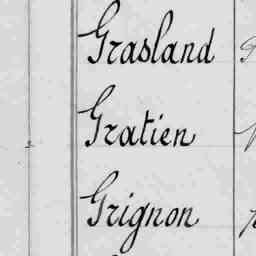 Grasland
Gratien
Grignon